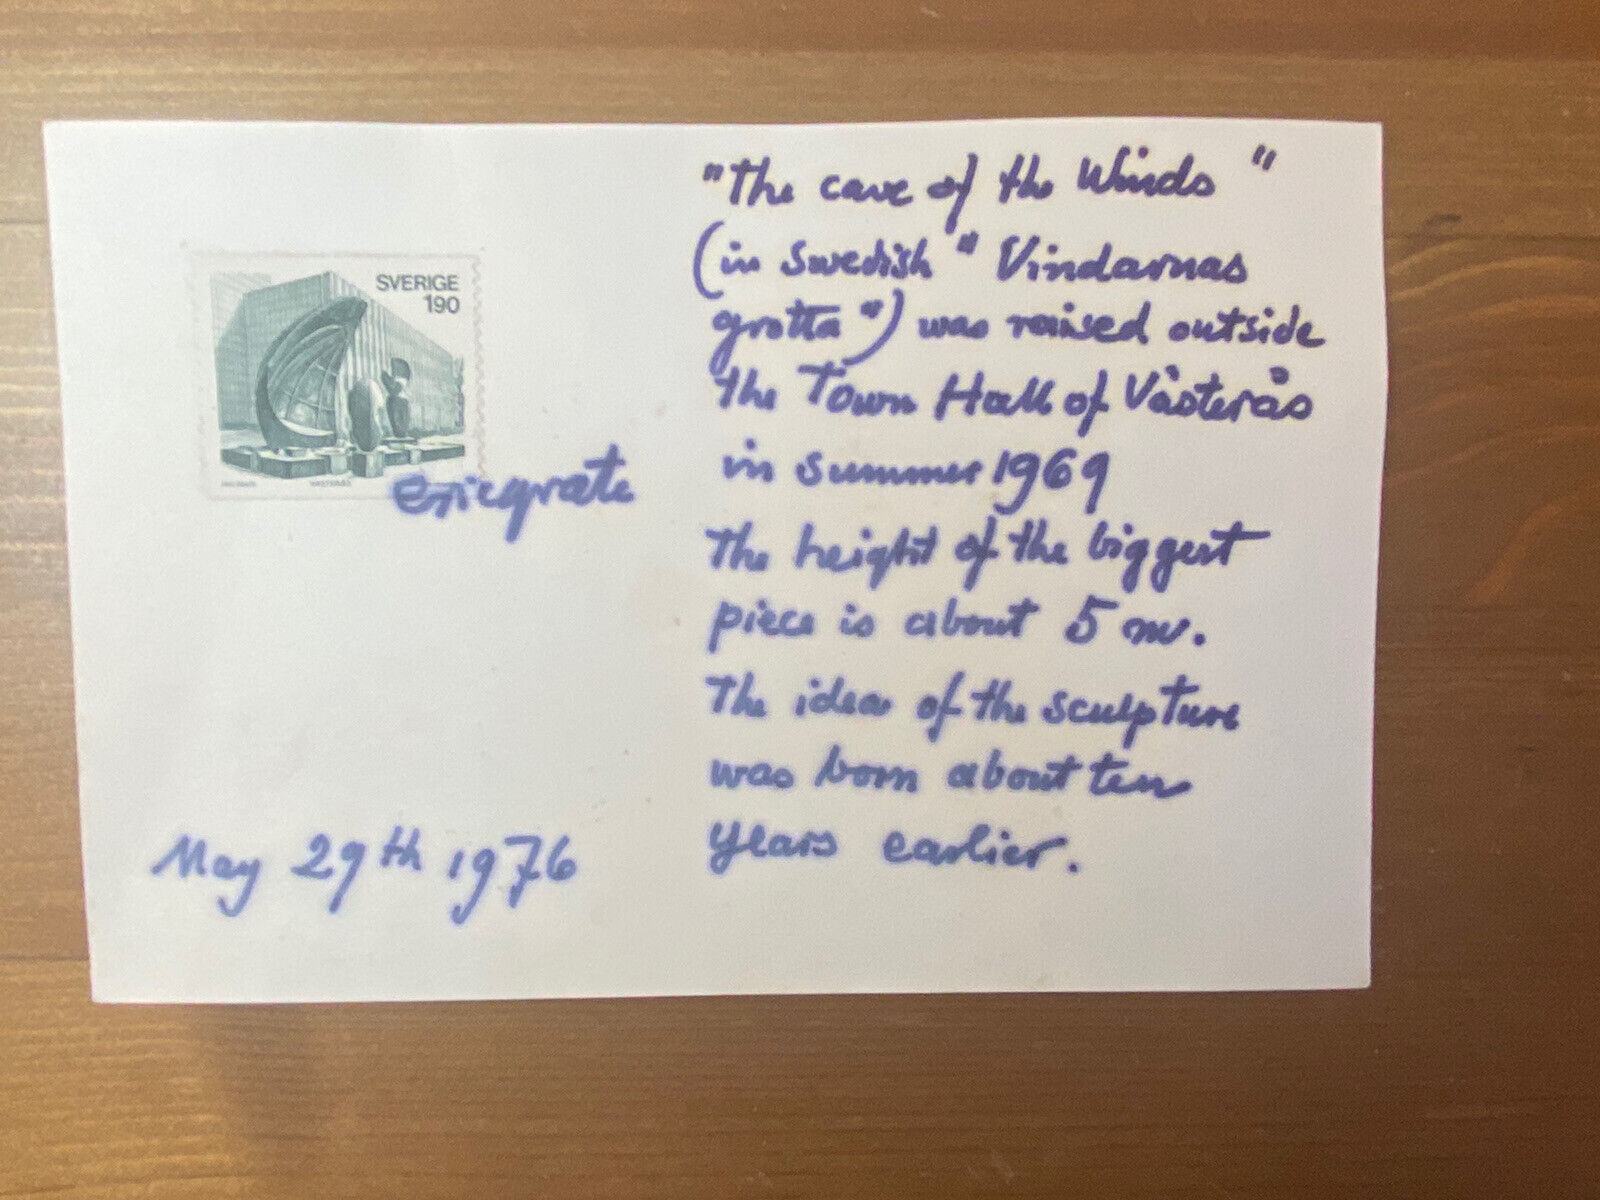 SVERIGE
190
VÄSTERÅS
ericgrate
May 29th 1976
"The cave of the Winds"
(in Swedish "Vindarnas
grotta") was raised outside
the Town Hall of Västerås
in summer 1969
The height of the biggest
piece is about 5 m.
The idea of the sculpture
was born about ten
years earlier.